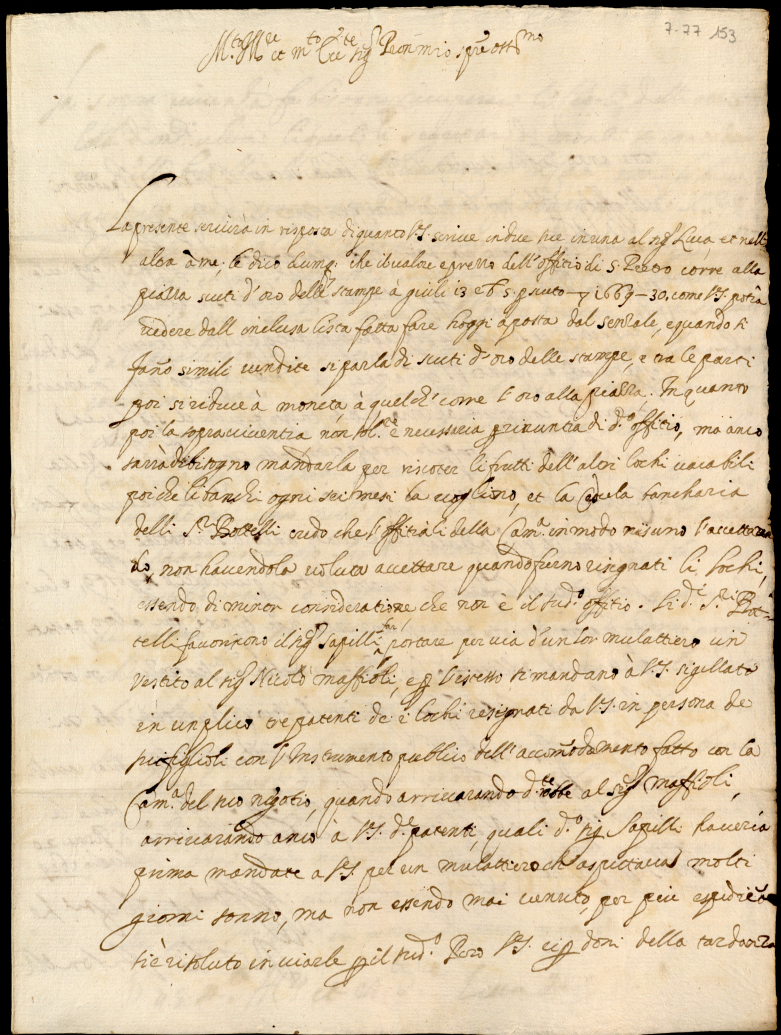 7.77 153
M.to Ill.re et m.to Ecc.te sig.r Pron mio sp.re oss.mo
La presente servirà in risposta di quanto V.S. scrive in due sue in una al sig.r Luca, et nell'
altra à me, le dico dunq. che il valor espresso dell'offitio di S. Pietro corre alla
piazza scuti d'oro delle stampe à giuli 13 e b. 5 p scuto 1669-30. come V.S. potrà
vedere dall inclusa lista fatta fare hoggi aposta dal sensale, e quando si
fano simili vendite si parla di scuti d'oro delle stampe, e tra le parti
poi si riduce à moneta à quelch'corre l'oro alla piazza. In quanto
poi la sopraviventia non sol.te è necessaria p rinuntia di d.o offitio, ma anco
sarrà di bisogno mandarla per riscoter li frutti dell'altri lochi vacabili
poiche li banchi ogni sei mesi la vogliono, et la cedula bancharia
delli S.ri Bottelli credo che l'offitiali della Cam.a in modo nisuno l'accettaran
no, non havendola voluta accettare quando furno risignati li lochi,
essendo di minor consideratione che non è il sud.o offitio. Li d.i S.ri Bot-
telli favorirono il sig.r Sapilli far portare per via d'un lor mulattiero un
vestito al sig.r Nicolò Maffioli, e p l'istesso si mandano à V.S. sigillate
in un plico tre patenti de i lochi resignati da V.S. in persona de
suoi figlioli con l'Instrumento publico dell'accomodamento fatto con la
Cam.a del suo negotio, quando arrivarando d.te robbe al sig.r Maffioli,
arrivarando anco à V.S. d.e patenti quali d.o sig.r Sapilli haveria
prima mandate a V.S. per un mulattiero ch'aspettava molti
giorni sonno, ma non essendo mai venuto, per più espeditione
si è risoluto inviarle p il sud.o Pero V.S. ci p doni della tardanza